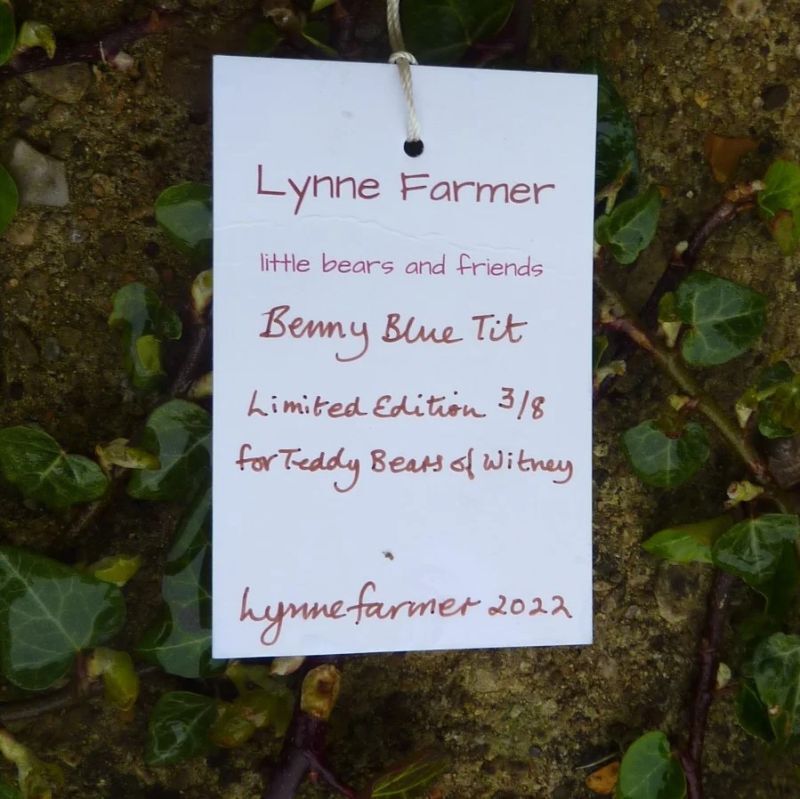 Lynne Farmer
little bears and friends
Benny Blue Tit
Limited Edition 3/8
for Teddy Bears of Witney
Lynne farmer 2022